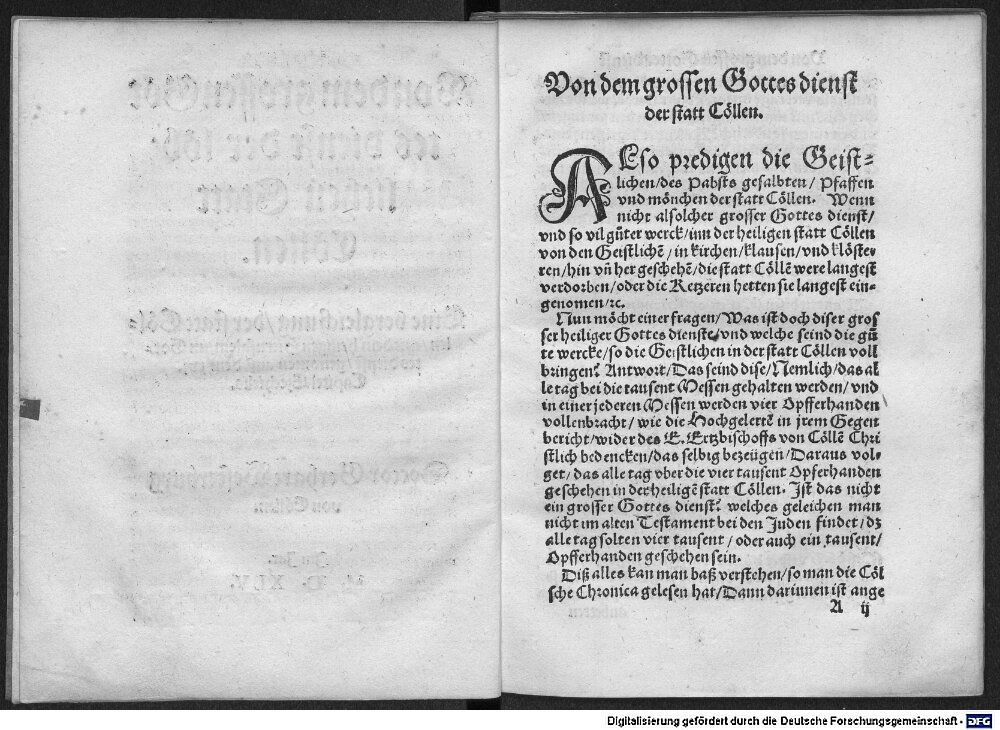 Von dem grossen Gottes dienst
der statt Cöllen.
ALso predigen die Geist⸗
lichen/des Pabsts gesalbten/ Pfaffen
vnd mönchen der statt Cöllen. Wenn
nicht alsolcher grosser Gottes dienst/
vnd so vil gůter werck/inn der heiligen statt Cöllen
von den Geistlichē/in kirchen/klausen/vnd klöste⸗
ren/hin vñ her geschehē/die statt Cöllē were langest
verdorben/oder die Ketzeren hetten sie langest ein⸗
genomen/ꝛc.
Nun möcht einer fragen/Was ist doch diser gros
ser heiliger Gottes dienste/vnd welche seind die gů
te wercke/so die Geistlichen in der statt Cöllen voll
bringen? Antwort/Das seind dise/Nemlich/das al
le tag bei die tausent Messen gehalten werden/vnd
in einer jederen Messen werden vier Opfferhanden
vollenbracht/ wie die Hochgelertē in jrem Gegen
bericht/wider des E. Ertzbischoffs von Cöllē Chri
stlich bedencken/das selbig bezeügen/Daraus vol⸗
get/das alle tag vber die vier tausent Opferhanden
geschehen in der heiligē statt Cöllen. Ist das nicht
ein grosser Gottes dienst? welches geleichen man
nicht im alten Testament bei den Juden findet/dz
alle tag solten vier tausent/oder auch ein tausent/
Opfferhanden geschehen sein.
Diß alles kan man baß verstehen/so man die Cöl
sche Chronica gelesen hat/Dann darinnen ist ange
A ij
Digitalisierung gefördert durch die Deutsche Forschungsgemeinschaft - DFG